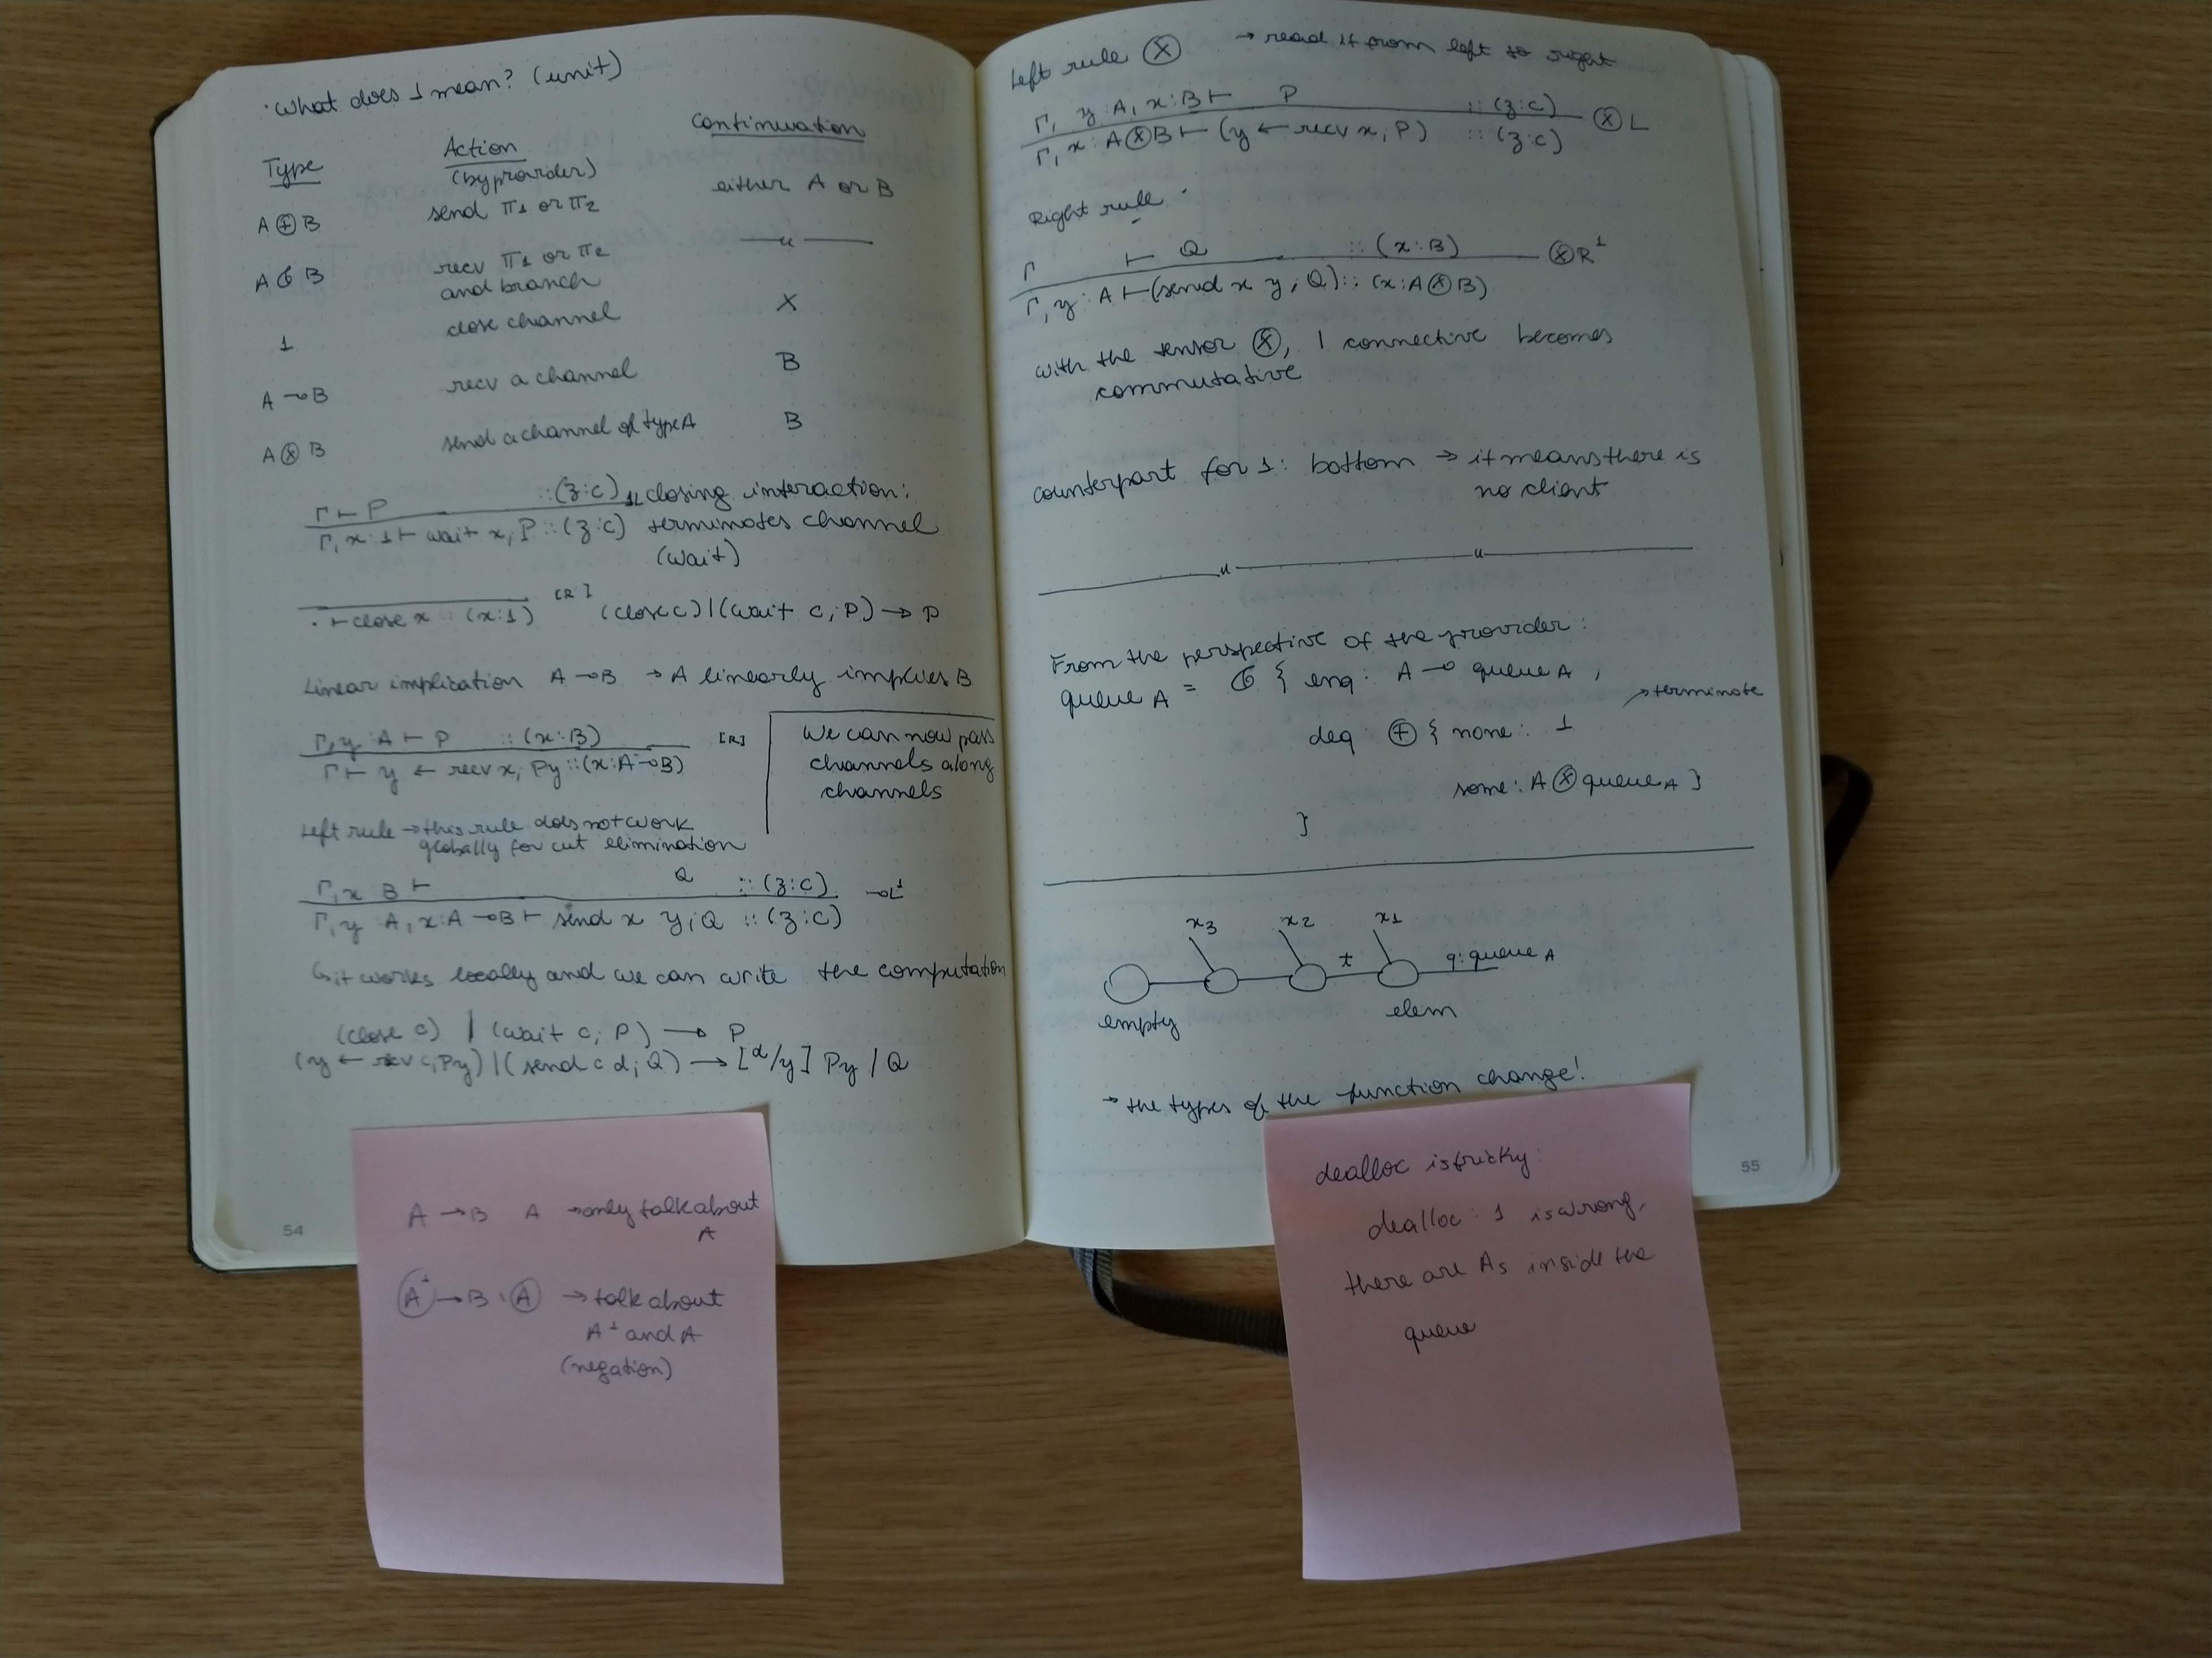 · What does 1 mean? (unit)
Type Action Continuation
(by provider)
A ⊕ B send π1 or π2 either A or B
A & B recv π1 or π2 —〃—
and branch
1 close channel X
A ⊸ B recv a channel B
A ⊗ B send a channel of type A B
Γ ⊢ P :: (z:C) 1L closing interaction:
Γ, x:1 ⊢ wait x; P :: (z:C) terminates channel
(wait)
· ⊢ close x :: (x:1) [R] (close c) | (wait c; P) → P
Linear implication A ⊸ B → A linearly implies B
Γ, y:A ⊢ P :: (x:B) [R]
Γ ⊢ y ← recv x; Py :: (x:A ⊸ B)
We can now pass
channels along
channels
Left rule → this rule does not work
globally for cut elimination
Γ, x B ⊢ Q :: (z:C) ⊸L¹
Γ, y A, x:A ⊸ B ⊢ send x y; Q :: (z:C)
↳ it works locally and we can write the computation
(close c) | (wait c; P) → P
(y ← recv c; Py) | (send c d; Q) → [d/y] Py | Q
54
A ⊸ B A → only talk about
A
A⊥ ⊸ B A → talk about
A⊥ and A
(negation)
Left rule ⊗ → read it from left to right
Γ, y:A, x:B ⊢ P :: (z:C) ⊗L
Γ, x:A⊗B ⊢ (y ← recv x; P) :: (z:C)
Right rule.
Γ ⊢ Q :: (x:B) ⊗R¹
Γ, y:A ⊢ (send x y; Q) :: (x:A⊗B)
with the tensor ⊗, 1 connective becomes
commutative
counterpart for 1: bottom → it means there is
no client
—〃— —〃—
From the perspective of the provider:
queue A = & { enq: A ⊸ queue A,
deq: ⊕ { none: 1 → terminate
some: A ⊗ queue A }
}
x3 x2 x1
t q: queue A
empty elem
→ the types of the function change!
55
dealloc is tricky:
dealloc: 1 is wrong,
there are As inside the
queue